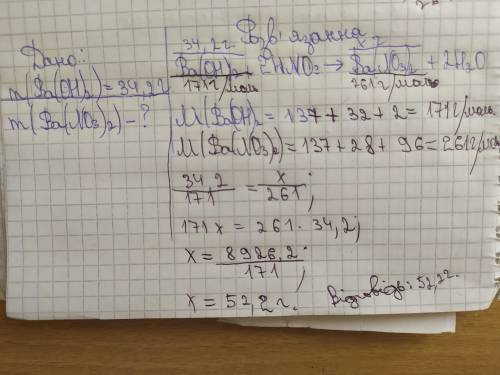 Дано:
m(Ba(OH)₂)=34,2г
m(Ba(NO₃)₂)-?
Розв'язання
34,2г x г
Ba(OH)₂ + 2HNO₃ → Ba(NO₃)₂ + 2H₂O
171г/моль 261г/моль
M(Ba(OH)₂)=137+32+2=171г/моль
M(Ba(NO₃)₂)=137+28+96=261г/моль
34,2/171 = x/261;
171x = 261·34,2;
x = 8926,2/171;
x = 52,2г. Відповідь: 52,2г.